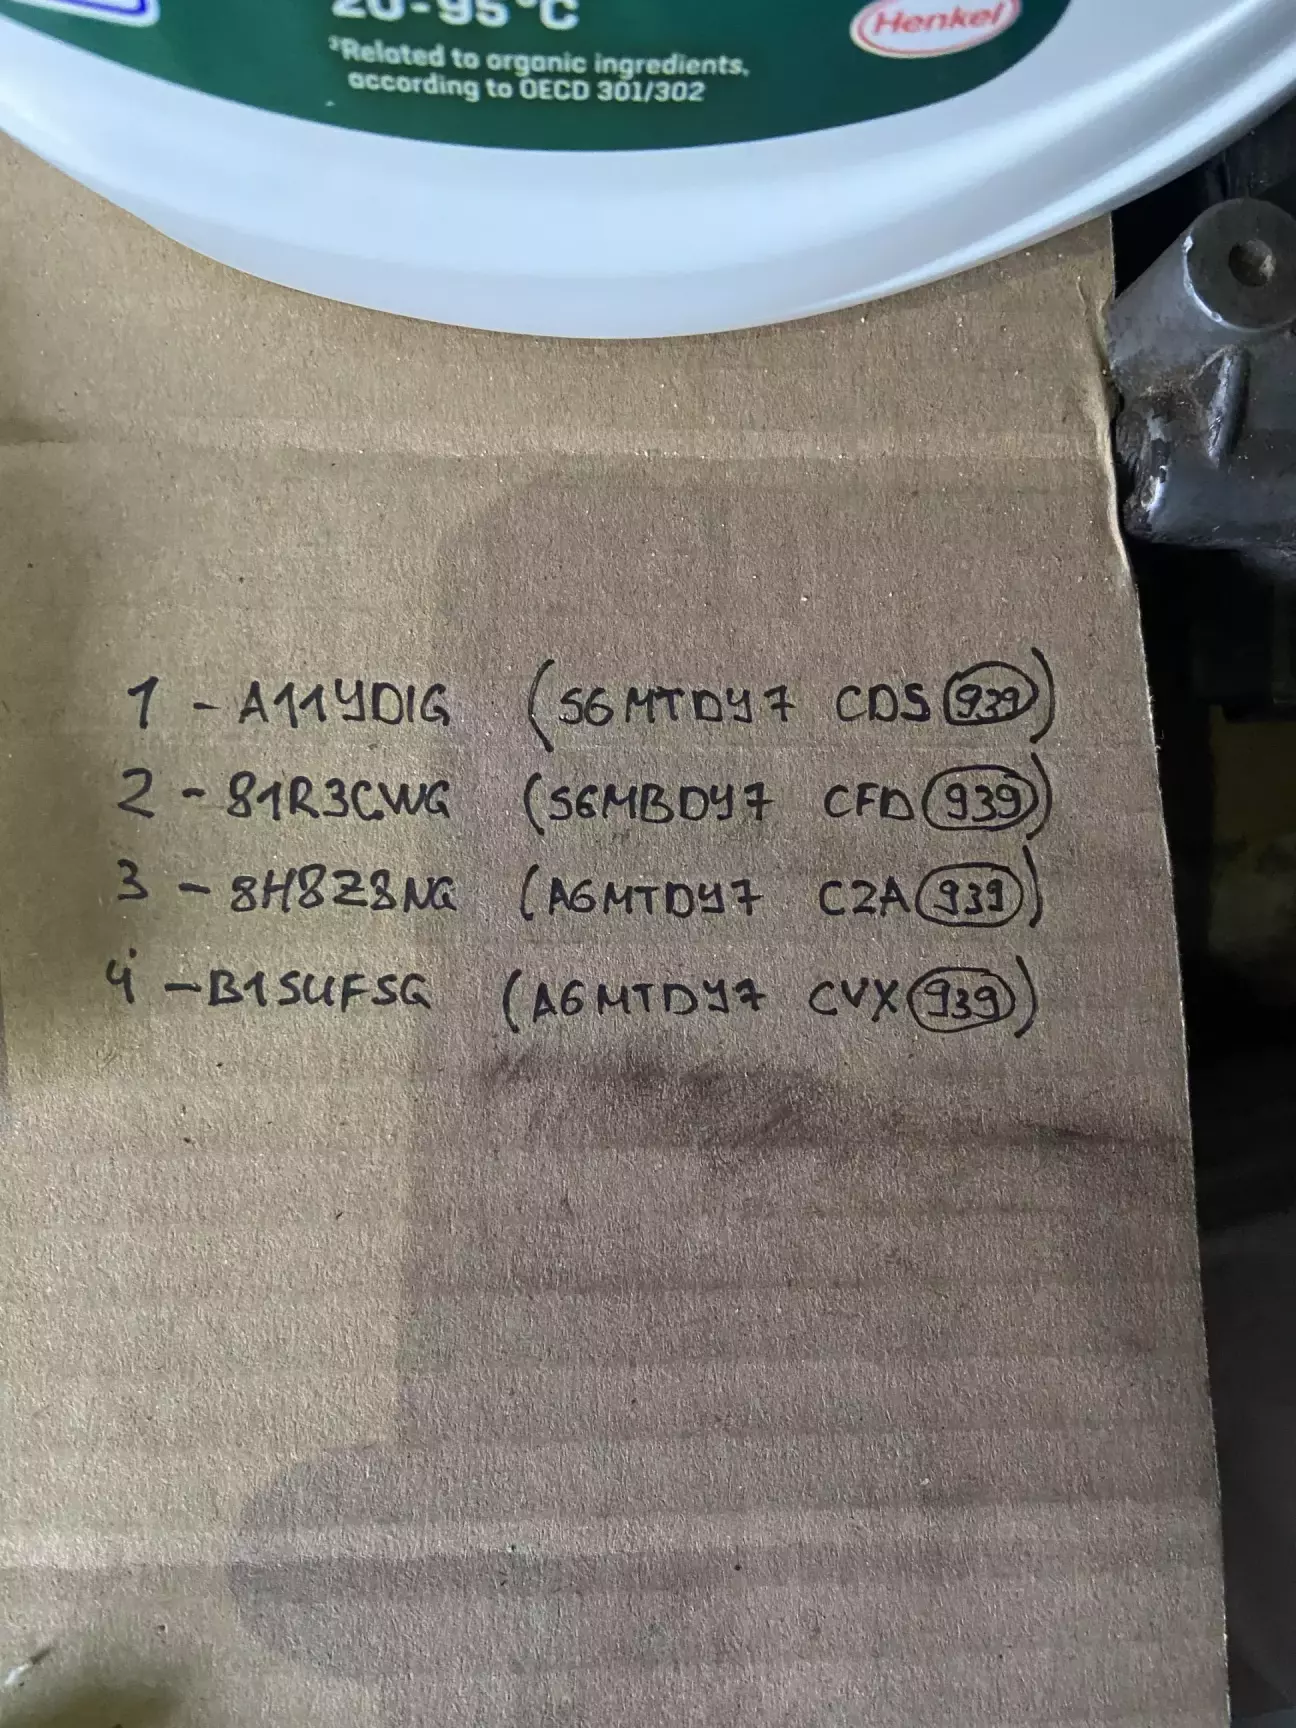 20-95 °C
Henkel
³Related to organic ingredients,
according to OECD 301/302
1 - A11YDIG (S6MTDY7 CDS 939)
2 - 81R3CWG (S6MBDY7 CFD 939)
3 - 8H8Z8NG (A6MTDY7 C2A 939)
4 - B1SUFSG (A6MTDY7 CVX 939)